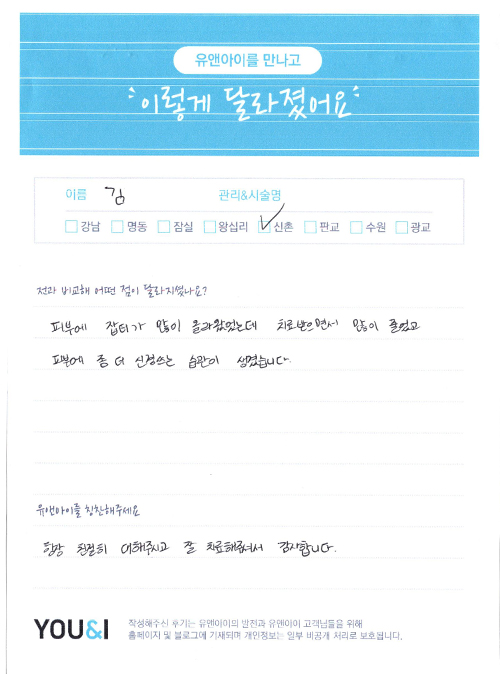 유앤아이를 만나고
이렇게 달라졌어요
이름 김 관리&시술명
강남 명동 잠실 왕십리 신촌 판교 수원 광교
전과 비교해 어떤 점이 달라지셨나요?
피부에 잡티가 많이 올라왔었는데 치료받으면서 많이 줄었고
피부에 좀 더 신경쓰는 습관이 생겼습니다.
유앤아이를 칭찬해주세요
항상 친절히 대해주시고 잘 치료해주셔서 감사합니다.
YOU&I
작성해주신 후기는 유앤아이의 발전과 유앤아이 고객님들을 위해
홈페이지 및 블로그에 기재되며 개인정보는 일부 비공개 처리로 보호됩니다.